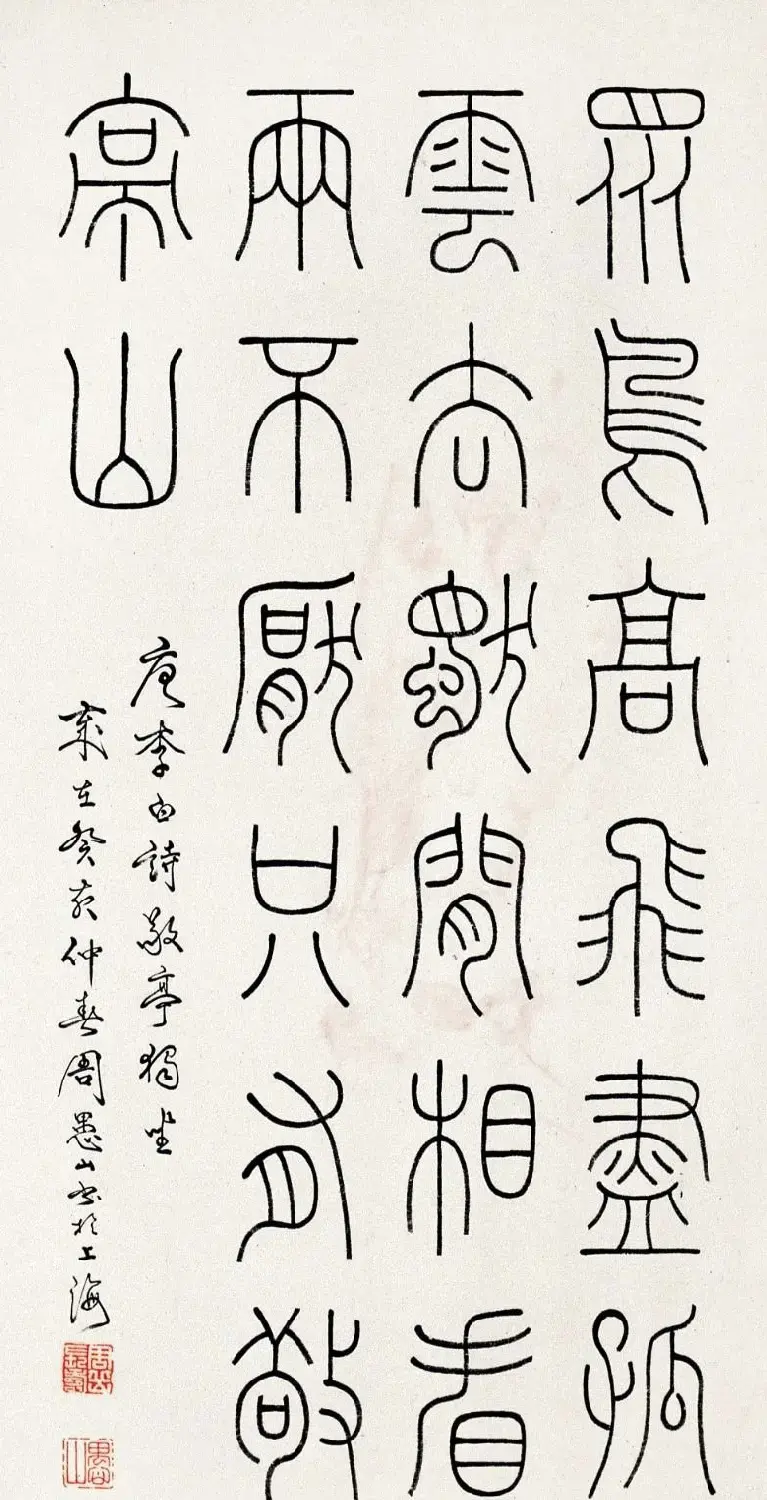 眾鳥高飛盡孤
雲去獨閒相看
兩不厭只有敬
亭山
唐李白詩敬亭獨坐
歲在癸亥仲春周愚山書於上海
愚山